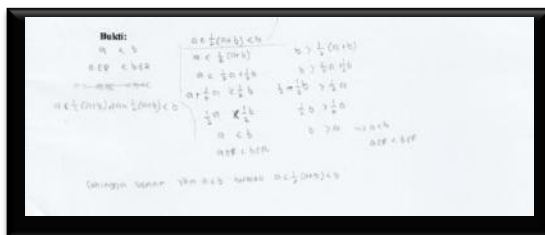 Bukti:
a < b
a∈R < b∈R
a < ½(a+b) dan ½(a+b) < b
a < ½(a+b) < b
a < ½(a+b)
a < ½a + ½b
½a < ½b
a < b
a∈R < b∈R
b > ½(a+b)
b > ½a + ½b
b - ½b > ½a
½b > ½a
b > a → a < b
a∈R < b∈R
Sehingga benar a < b a < ½(a+b) < b